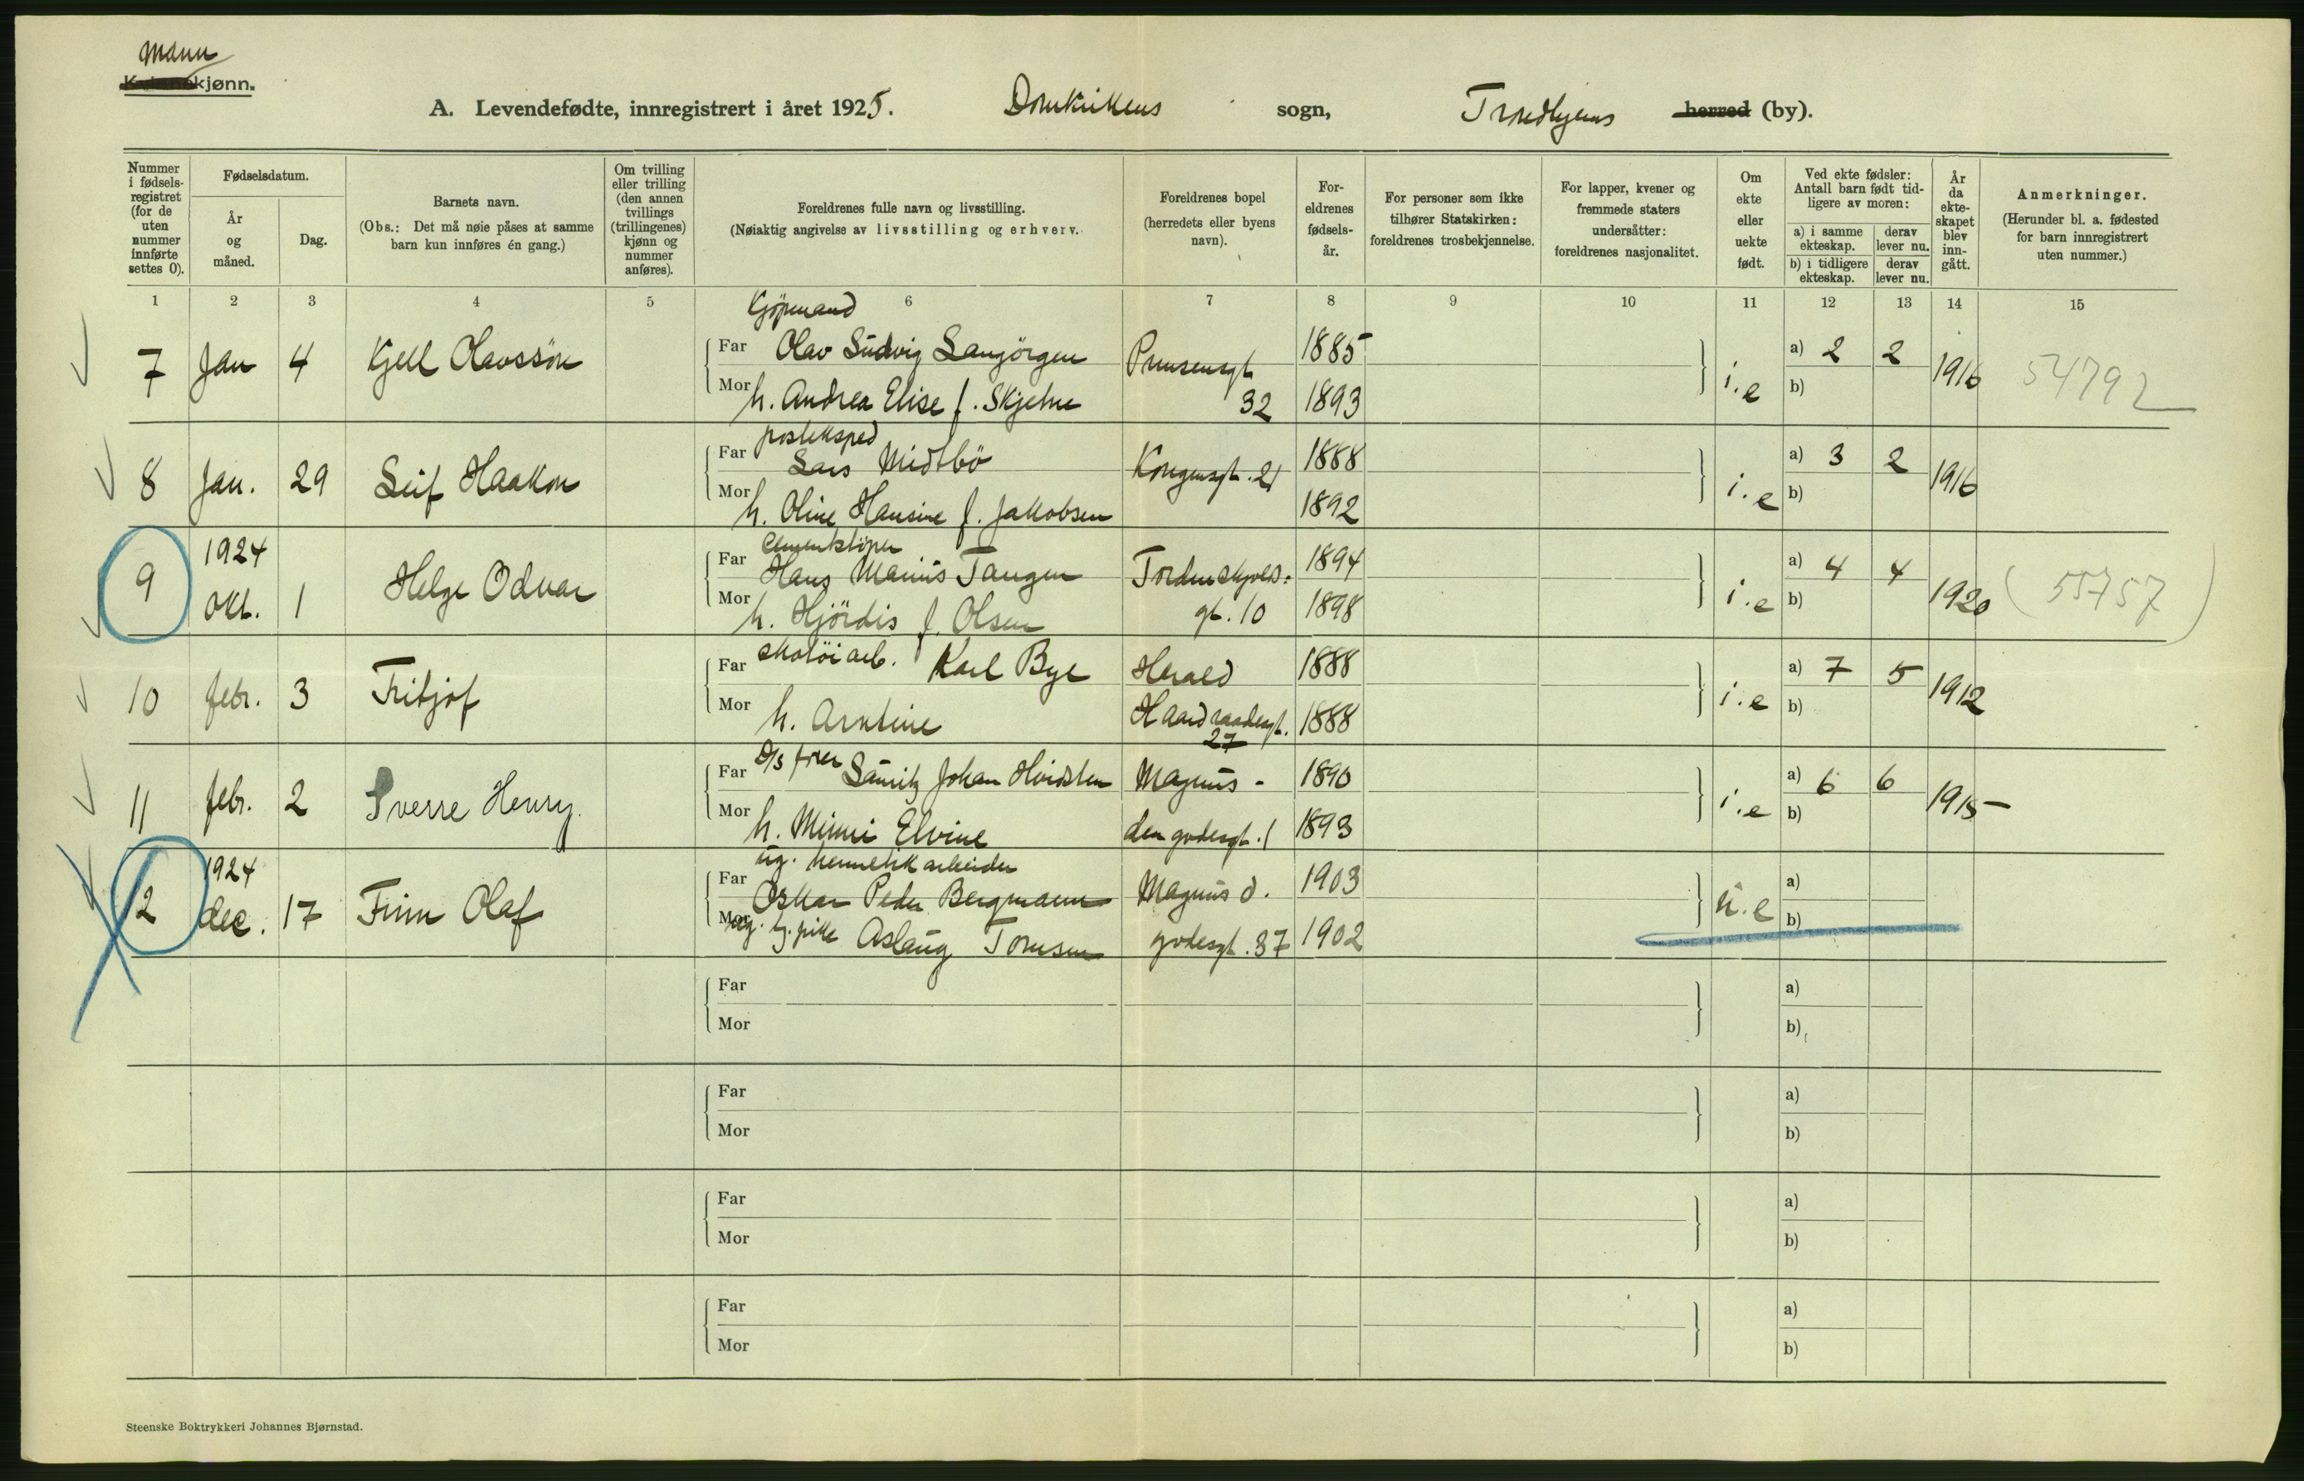 Mann
Kvinnekjønn.
A. Levendefødte, innregistrert i året 1925. Domkirkens sogn, Trondhjems herred (by).
Nummer i fødsels-registret (for de uten nummer innførte settes 0).
Fødselsdatum.
År og måned.
Dag.
Barnets navn.
(Obs.: Det må nøie påses at samme barn kun innføres én gang.)
Om tvilling eller trilling (den annen tvillings (trillingenes) kjønn og nummer anføres).
Foreldrenes fulle navn og livsstilling.
(Nøiaktig angivelse av livsstilling og erhverv.
Foreldrenes bopel
(herredets eller byens navn).
For-eldrenes fødsels-år.
For personer som ikke tilhører Statskirken: foreldrenes trosbekjennelse.
For lapper, kvener og fremmede staters undersåtter: foreldrenes nasjonalitet.
Om ekte eller uekte født.
Ved ekte fødsler: Antall barn født tid-ligere av moren:
a) i samme ekteskap.
derav lever nu.
b) i tidligere ekteskap.
derav lever nu.
År da ekte-skapet blev inn-gått.
Anmerkninger.
(Herunder bl. a. fødested for barn innregistrert uten nummer.)
1 2 3 4 5 6 7 8 9 10 11 12 13 14 15
Kjøpmand
7 Jan 4 Kjell Olavssön Far Olav Ludvig Langörgen Prinsensgt 1885 i.e a) 2 2 1916 54792
Mor h. Andrea Elise f. Skjelne 32 1893 b)
posteksped
8 Jan. 29 Leif Haakon Far Lars Midtbö Kongensgt. 21 1888 i.e a) 3 2 1916
Mor h. Oline Hansine f. Jakobsen 1892 b)
cementstöper
9 1924 Okt. 1 Helge Odvar Far Hans Marius Tangen Tordenskjolds- 1894 i.e a) 4 4 1920 (55757)
Mor h. Hjördis f. Olsen gt. 10 1898 b)
skotöiarb.
10 febr. 3 Fritjof Far Karl Bye Harald 1888 i.e a) 7 5 1912
Mor h. Arntine Haardraadesgt. 27 1888 b)
D/s fører
11 febr. 2 Sverre Henry. Far Lauritz Johan Hvidsten Magnus - 1890 i.e a) 6 6 1915
Mor h. Minni Elvine den godesgt. 1 1893 b)
ug. hermetikarbeider
12 1924 dec. 17 Finn Olaf Far Oskar Peder Bergmann Magnus d. 1903 u.e a)
Mor ug. tj. pike Aslaug Tomsen godesgt. 37 1902 b)
Far a)
Mor b)
Far a)
Mor b)
Far a)
Mor b)
Far a)
Mor b)
Steenske Boktrykkeri Johannes Bjørnstad.